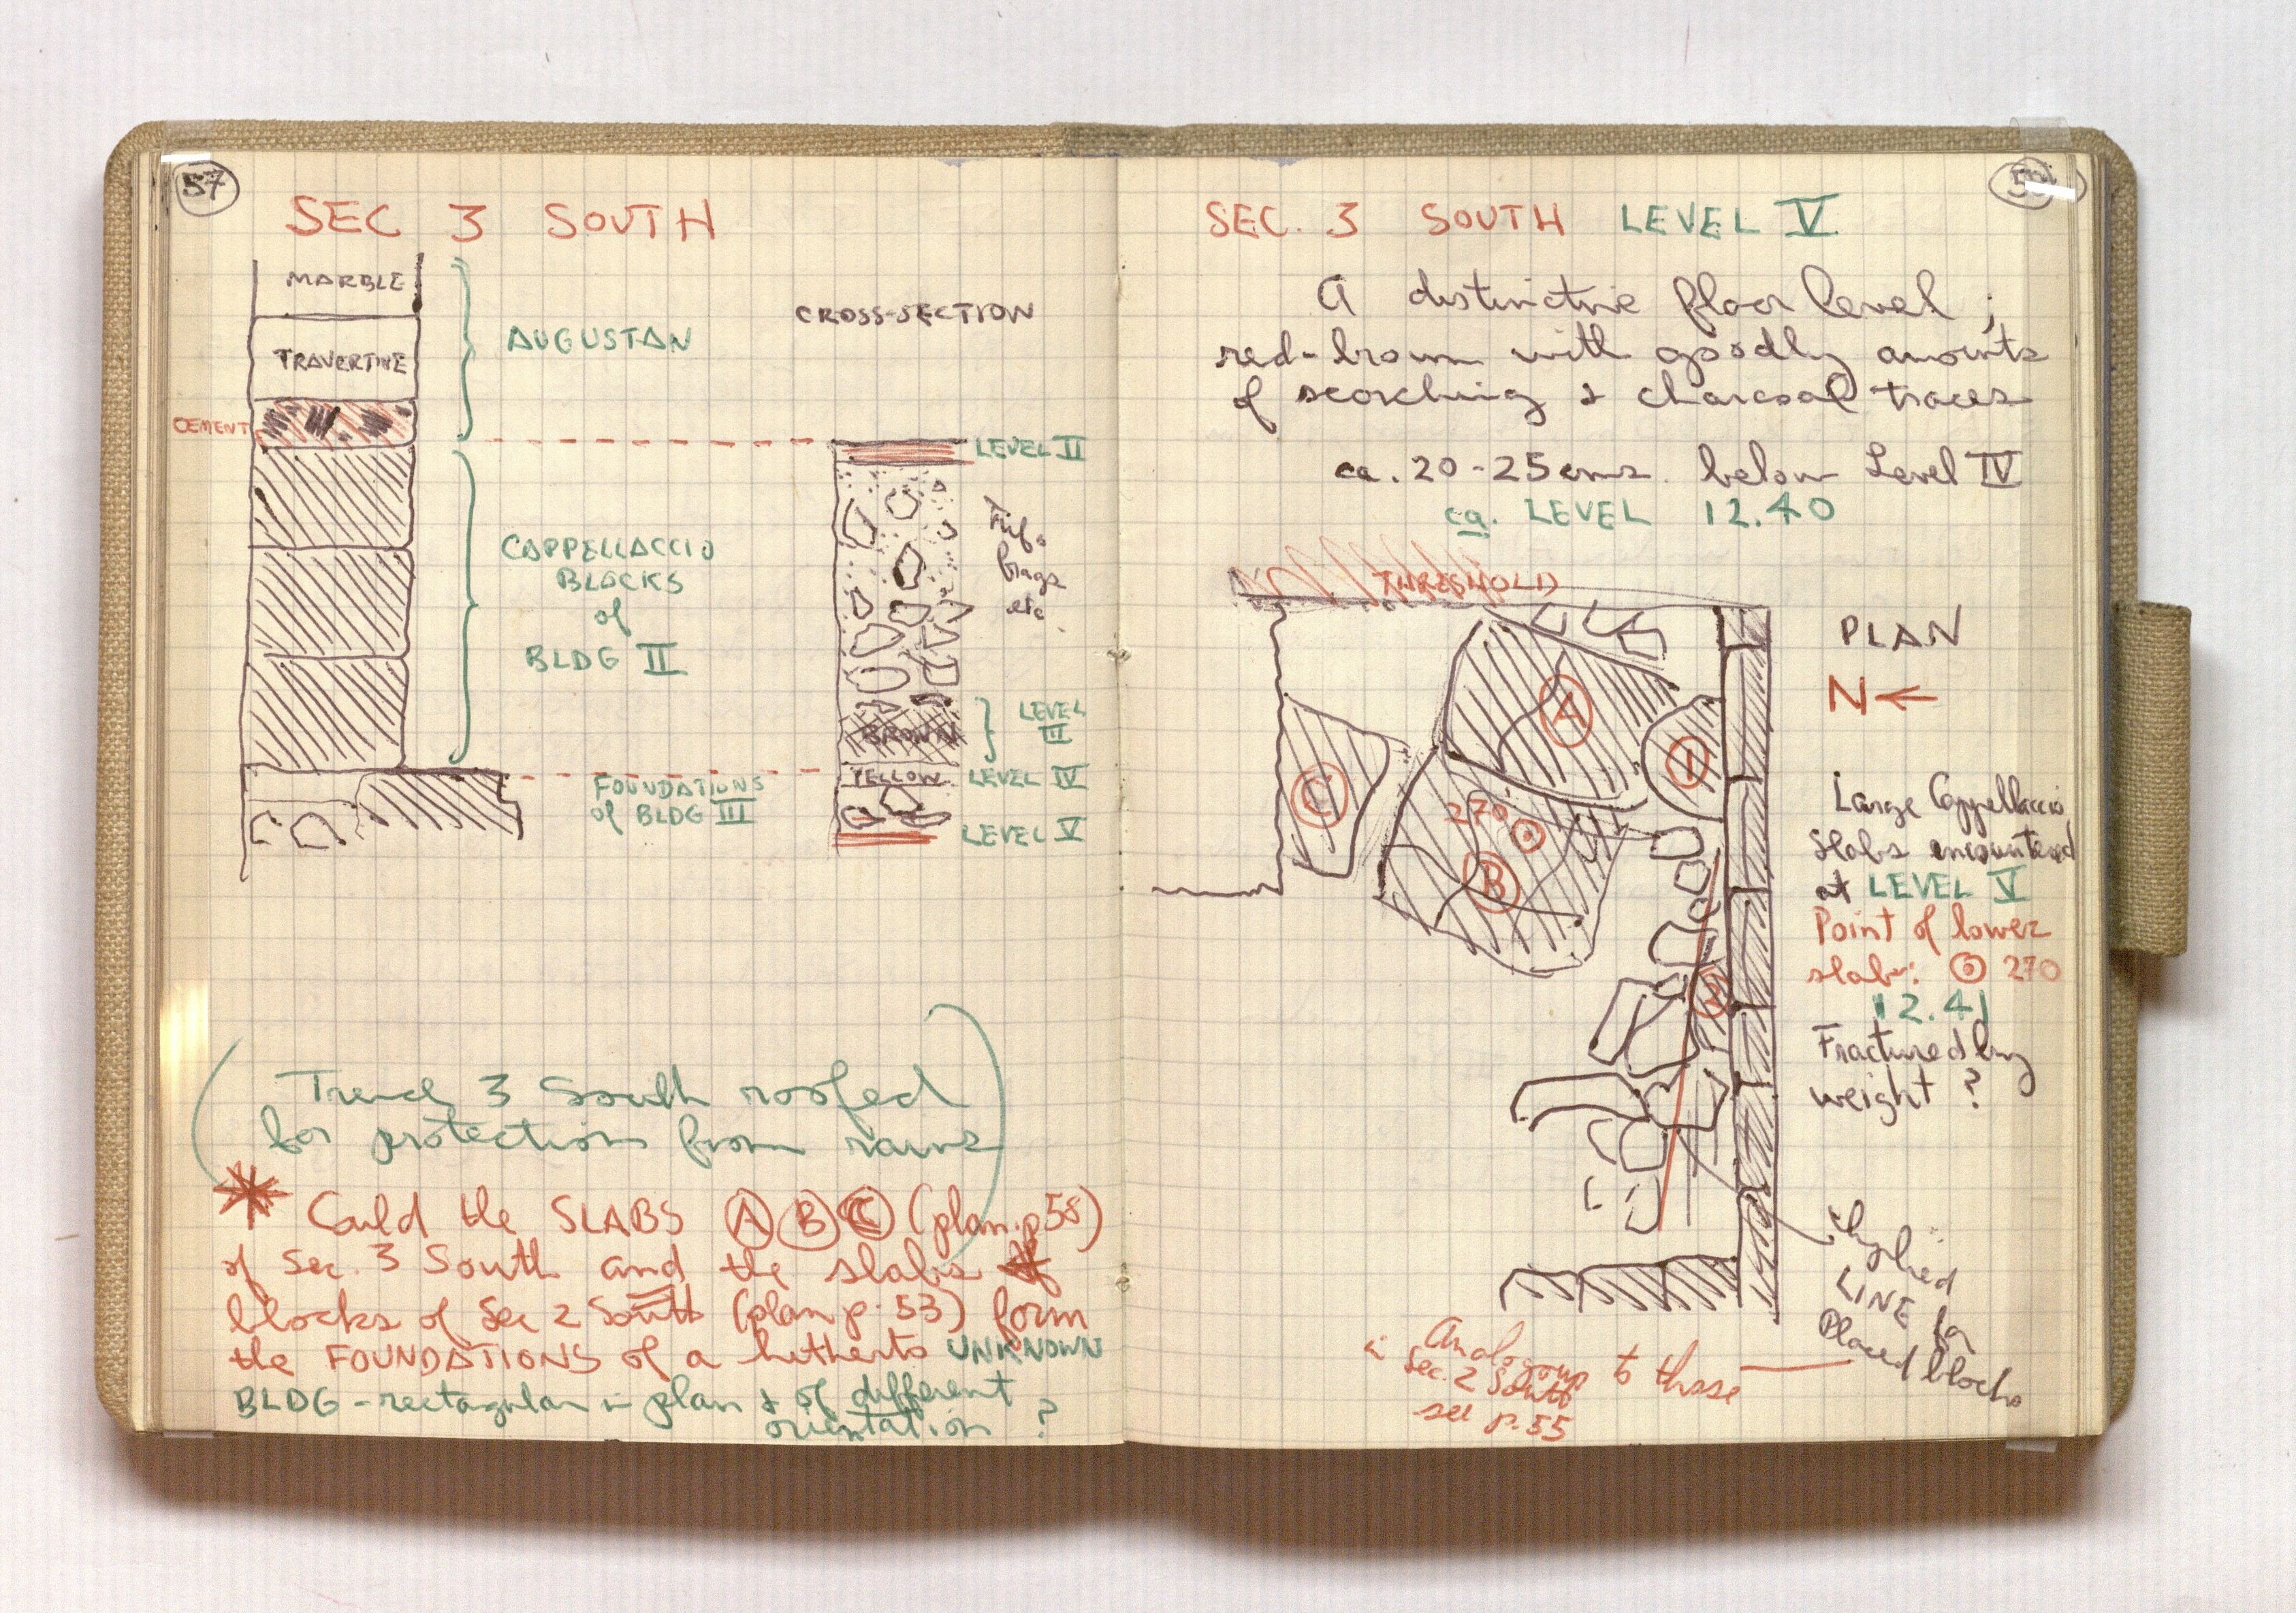 57
SEC 3 SOUTH
MARBLE
TRAVERTINE
CEMENT
AUGUSTAN
CROSS-SECTION
LEVEL II
CAPPELLACCIO
BLOCKS
of
BLDG II
Tuf.
frags
etc.
BROWN
LEVEL
III
YELLOW
LEVEL IV
FOUNDATIONS
of BLDG III
LEVEL V
(Trench 3 South roofed
for protection from rains)
* Could the SLABS A B C (plan p 58)
of Sec. 3 South and the slabs of
blocks of Sec 2 South (plan p. 53) form
the FOUNDATIONS of a hitherto UNKNOWN
BLDG - rectangular in plan & of different
orientation ?
SEC. 3 SOUTH LEVEL V
A distinctive floor level;
red-brown with goodly amounts
of scorching & charcoal traces
ca. 20-25 cms. below Level IV
ca. LEVEL 12.40
THRESHOLD
PLAN
N ←
A
1
C
270
B
2
Large Cappellaccio
Slabs encountered
at LEVEL V
Point of lower
slab: 270
12.41
Fractured by
weight ?
LINE for
Placed blocks
Analogous to those
in Sec. 2 South
see p. 55